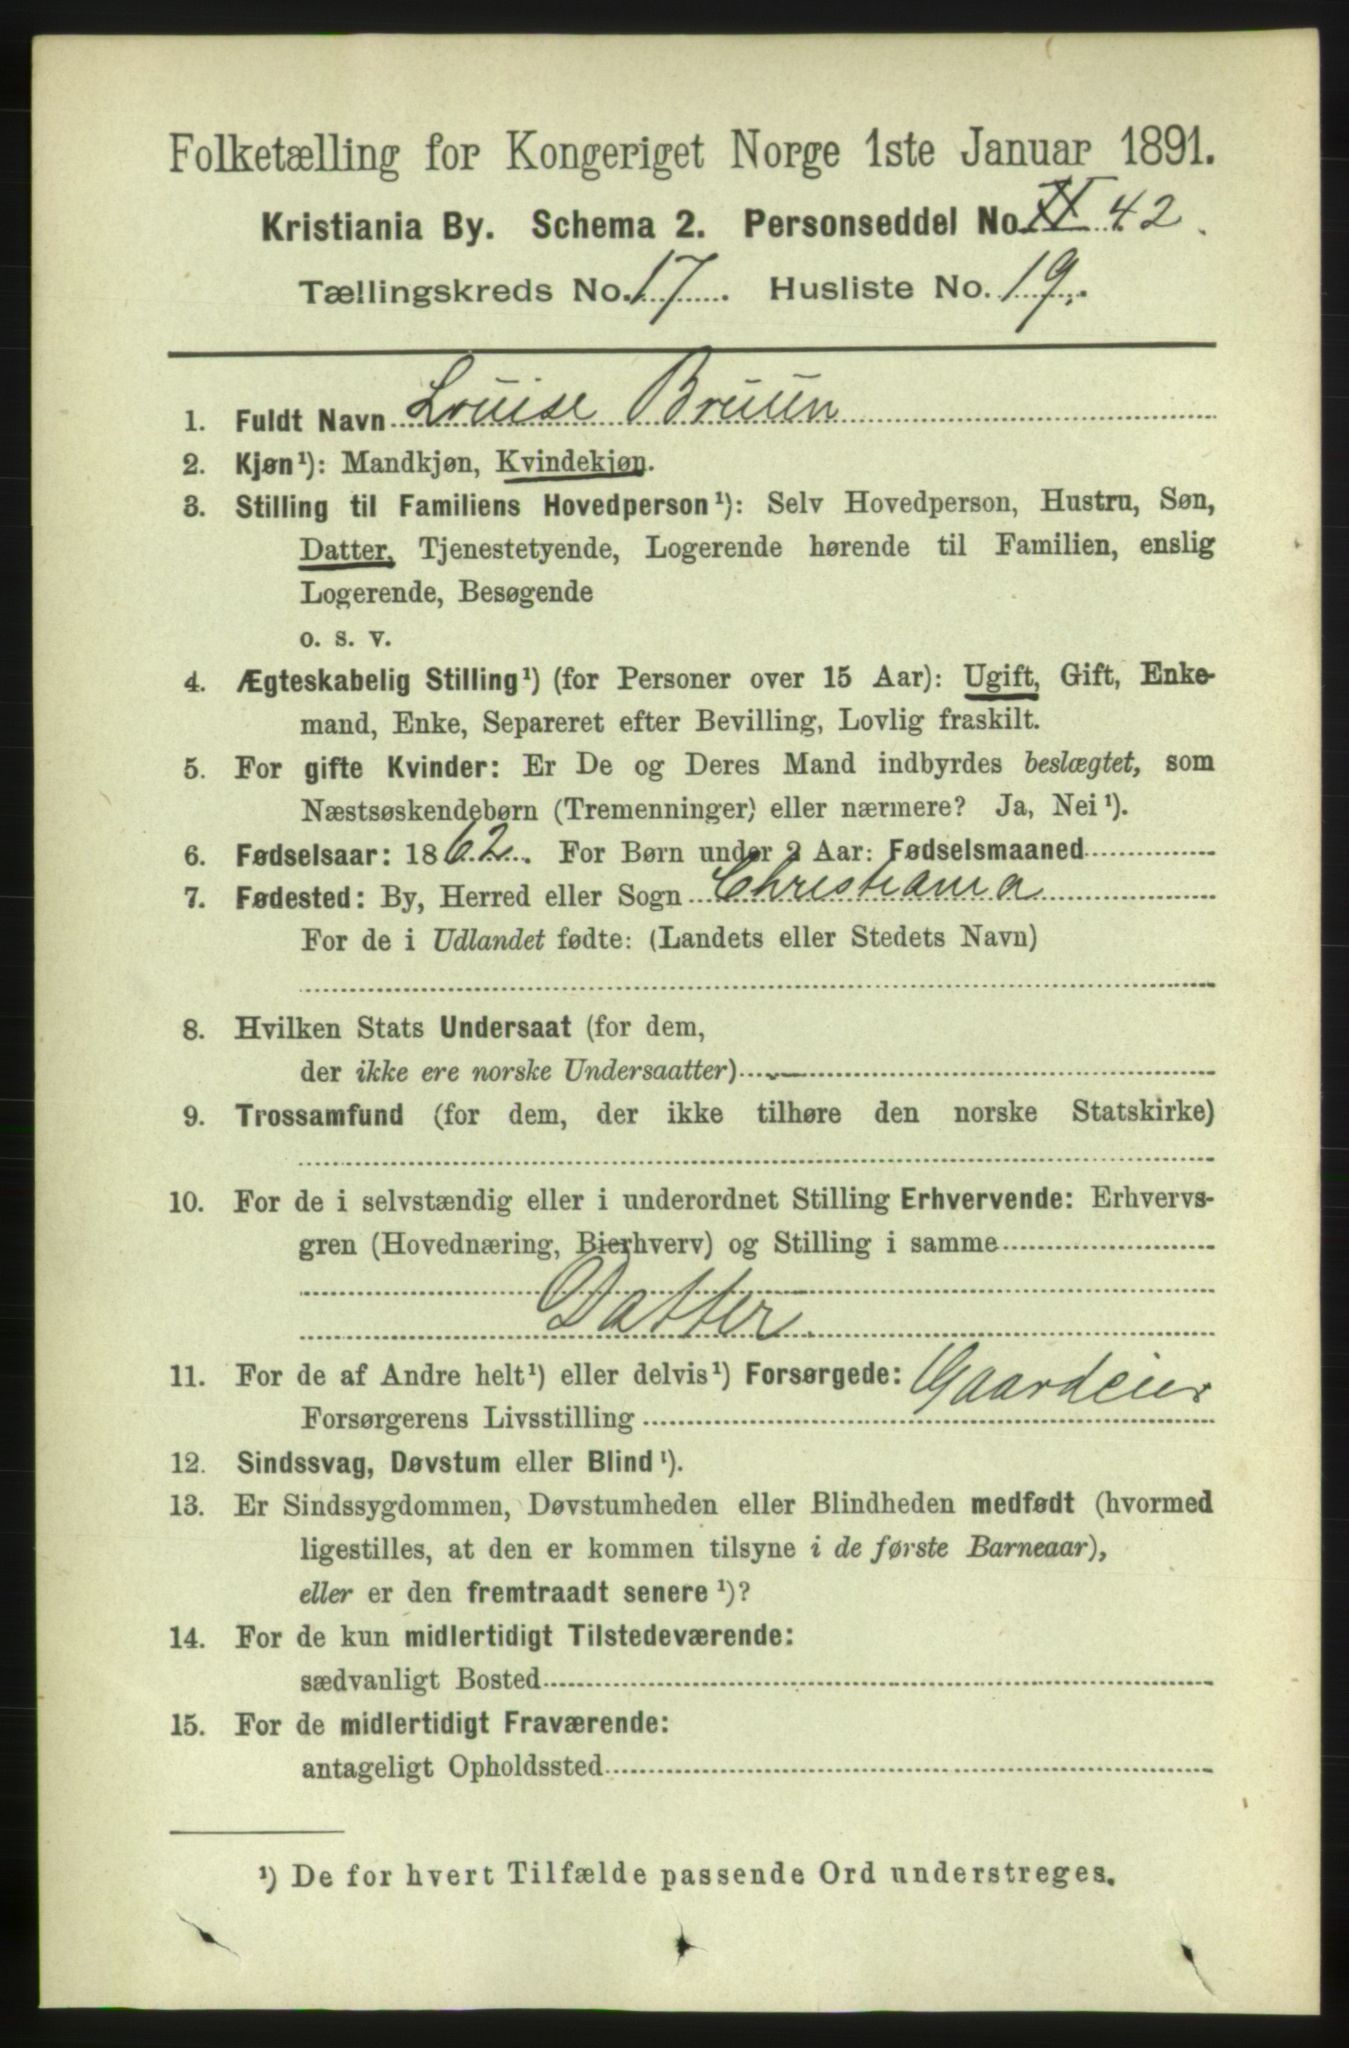 Folketælling for Kongeriget Norge 1ste Januar 1891.
Kristiania By. Schema 2. Personseddel No. 42.
Tællingskreds No. 17. Husliste No. 19.
1. Fuldt Navn Louise Bruun
2. Kjøn¹): Mandkjøn, Kvindekjøn.
3. Stilling til Familiens Hovedperson¹): Selv Hovedperson, Hustru, Søn,
Datter, Tjenestetyende, Logerende hørende til Familien, enslig
Logerende, Besøgende
o. s. v.
4. Ægteskabelig Stilling¹) (for Personer over 15 Aar): Ugift, Gift, Enke-
mand, Enke, Separeret efter Bevilling, Lovlig fraskilt.
5. For gifte Kvinder: Er De og Deres Mand indbyrdes beslægtet, som
Næstsøskendebørn (Tremenninger) eller nærmere? Ja, Nei¹).
6. Fødselsaar: 1862. For Børn under 2 Aar: Fødselsmaaned
7. Fødested: By, Herred eller Sogn Christiania
For de i Udlandet fødte: (Landets eller Stedets Navn)
8. Hvilken Stats Undersaat (for dem,
der ikke ere norske Undersaatter)
9. Trossamfund (for dem, der ikke tilhøre den norske Statskirke)
10. For de i selvstændig eller i underordnet Stilling Erhvervende: Erhvervs-
gren (Hovednæring, Bierhverv) og Stilling i samme
Datter
11. For de af Andre helt¹) eller delvis¹) Forsørgede: Gaardeier
Forsørgerens Livsstilling
12. Sindssvag, Døvstum eller Blind¹).
13. Er Sindssygdommen, Døvstumheden eller Blindheden medfødt (hvormed
ligestilles, at den er kommen tilsyne i de første Barneaar),
eller er den fremtraadt senere¹)?
14. For de kun midlertidigt Tilstedeværende:
sædvanligt Bosted
15. For de midlertidigt Fraværende:
antageligt Opholdssted
¹) De for hvert Tilfælde passende Ord understreges.